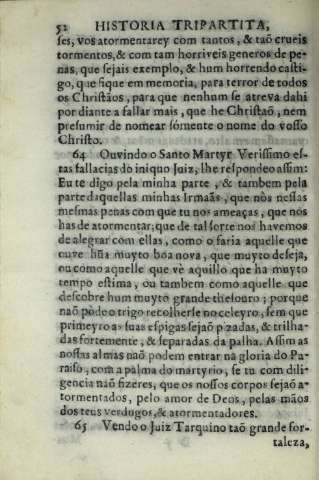 52 HISTORIA TRIPARTITA,
ses, vos atormentarey com tantos, & taõ crueis
tormentos, & com tam horriveis generos de pe-
nas, que sejais exemplo, & hum horrendo casti-
go, que fique em memoria, para terror de todos
os Christãos, para que nenhum se atreva dahi
por diante a fallar mais, que he Christaõ, nem
presumir de nomear sómente o nome do vosso
Christo.
64 Ouvindo o Santo Martyr Verissimo es-
tas fallacias do iniquo Juiz, lhe respondeo assim:
Eu te digo pela minha parte, & tambem pela
parte daquellas minhas Irmaãs, que nòs nestas
mesmas penas com que tu nos ameaças, que nos
has de atormentar; que de tal sorte nos havemos
de alegrar com ellas, como o faria aquelle que
ouve hũa muyto boa nova, que muyto deseja,
ou como aquelle que vè aquillo que ha muyto
tempo estima, ou tambem como aquelle que
descobre hum muyto grande thesouro; porque
naõ pòde o trigo recolherse no celeyro, sem que
primeyro as suas espigas sejaõ pizadas, & trilha-
das fortemente, & separadas da palha. Assim as
nossas almas naõ podem entrar na gloria do Pa-
raiso, com a palma do martyrio, se tu com dili-
gencia naõ fizeres, que os nossos corpos sejaõ a-
tormentados, pelo amor de Deos, pelas mãos
dos teus verdugos, & atormentadores.
65 Vendo o Juiz Tarquino taõ grande for-
taleza,